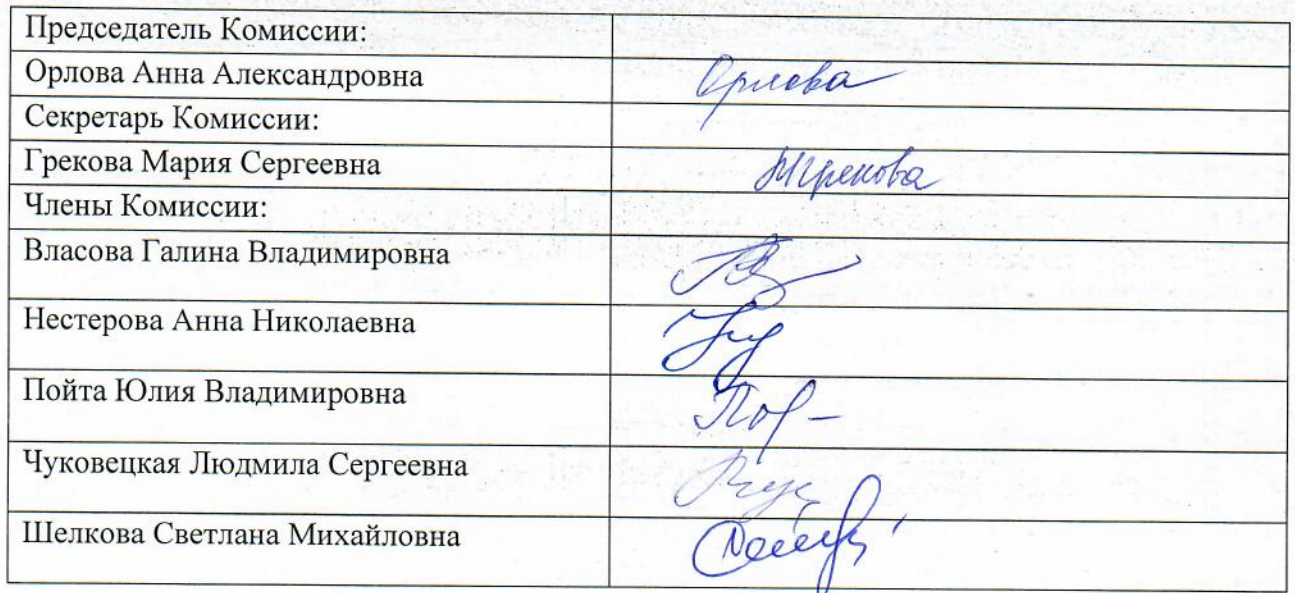 Председатель Комиссии:
Орлова Анна Александровна Орлова
Секретарь Комиссии:
Грекова Мария Сергеевна МГрекова
Члены Комиссии:
Власова Галина Владимировна
Нестерова Анна Николаевна
Пойта Юлия Владимировна
Чуковецкая Людмила Сергеевна
Шелкова Светлана Михайловна